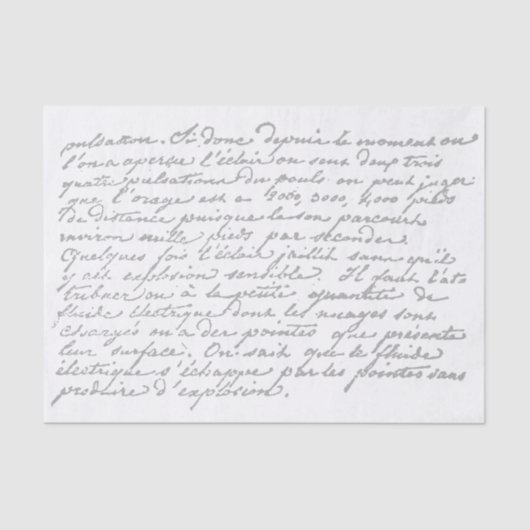 pulsation. Si donc depuis le moment ou
l'on a aperçu l'éclair on sent deux trois
quatre pulsations du pouls on peut juger
que l'orage est a 2000, 3000, 4,000 pieds
de distance puisque le son parcourt
environ mille pieds par seconder.
Quelques fois l'éclair jaillit sans qu'il
y ait explosion sensible. Il faut l'at
tribuer ou à la petite quantité de
fluide électrique dont les nuages sont
chargés ou a des pointes que présente
leur surface. On sait que le fluide
électrique s'échappe par les pointes sans
produire d'explosion.